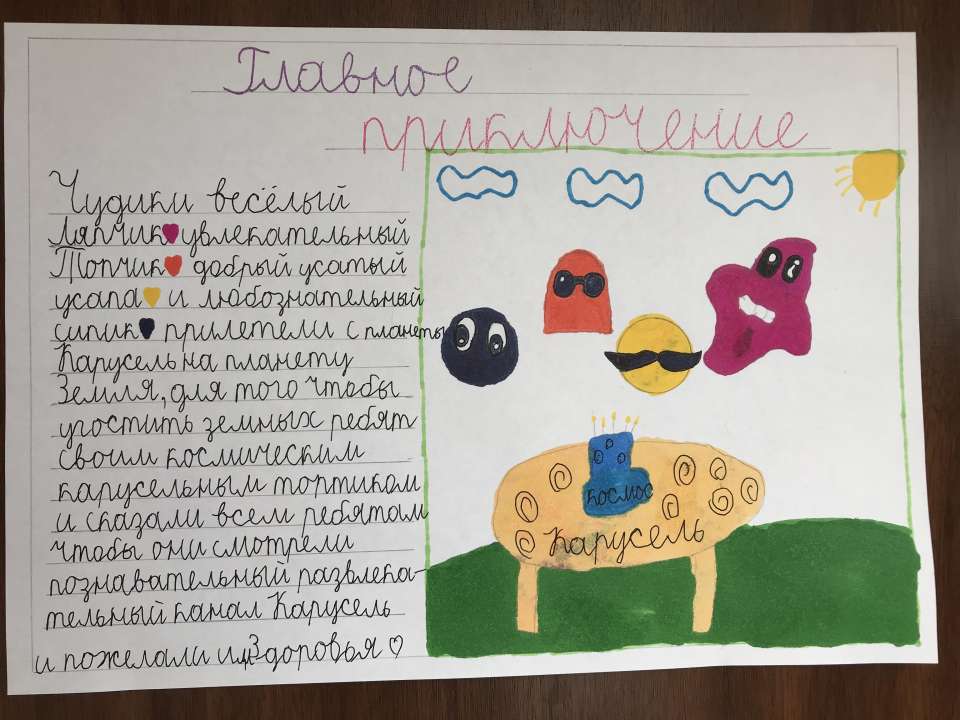 Главное
приключение
Чудики весёлый
Ляпчик увлекательный
Топчик добрый усатый
усапа и любознательный
сипик прилетели с планеты
Карусель на планету
Земля, для того чтобы
угостить земных ребят
своим космическим
карусельным тортиком
и сказали всем ребятам
чтобы они смотрели
познавательный развлека-
тельный канал Карусель
и пожелали им Здоровья
космос
Карусель